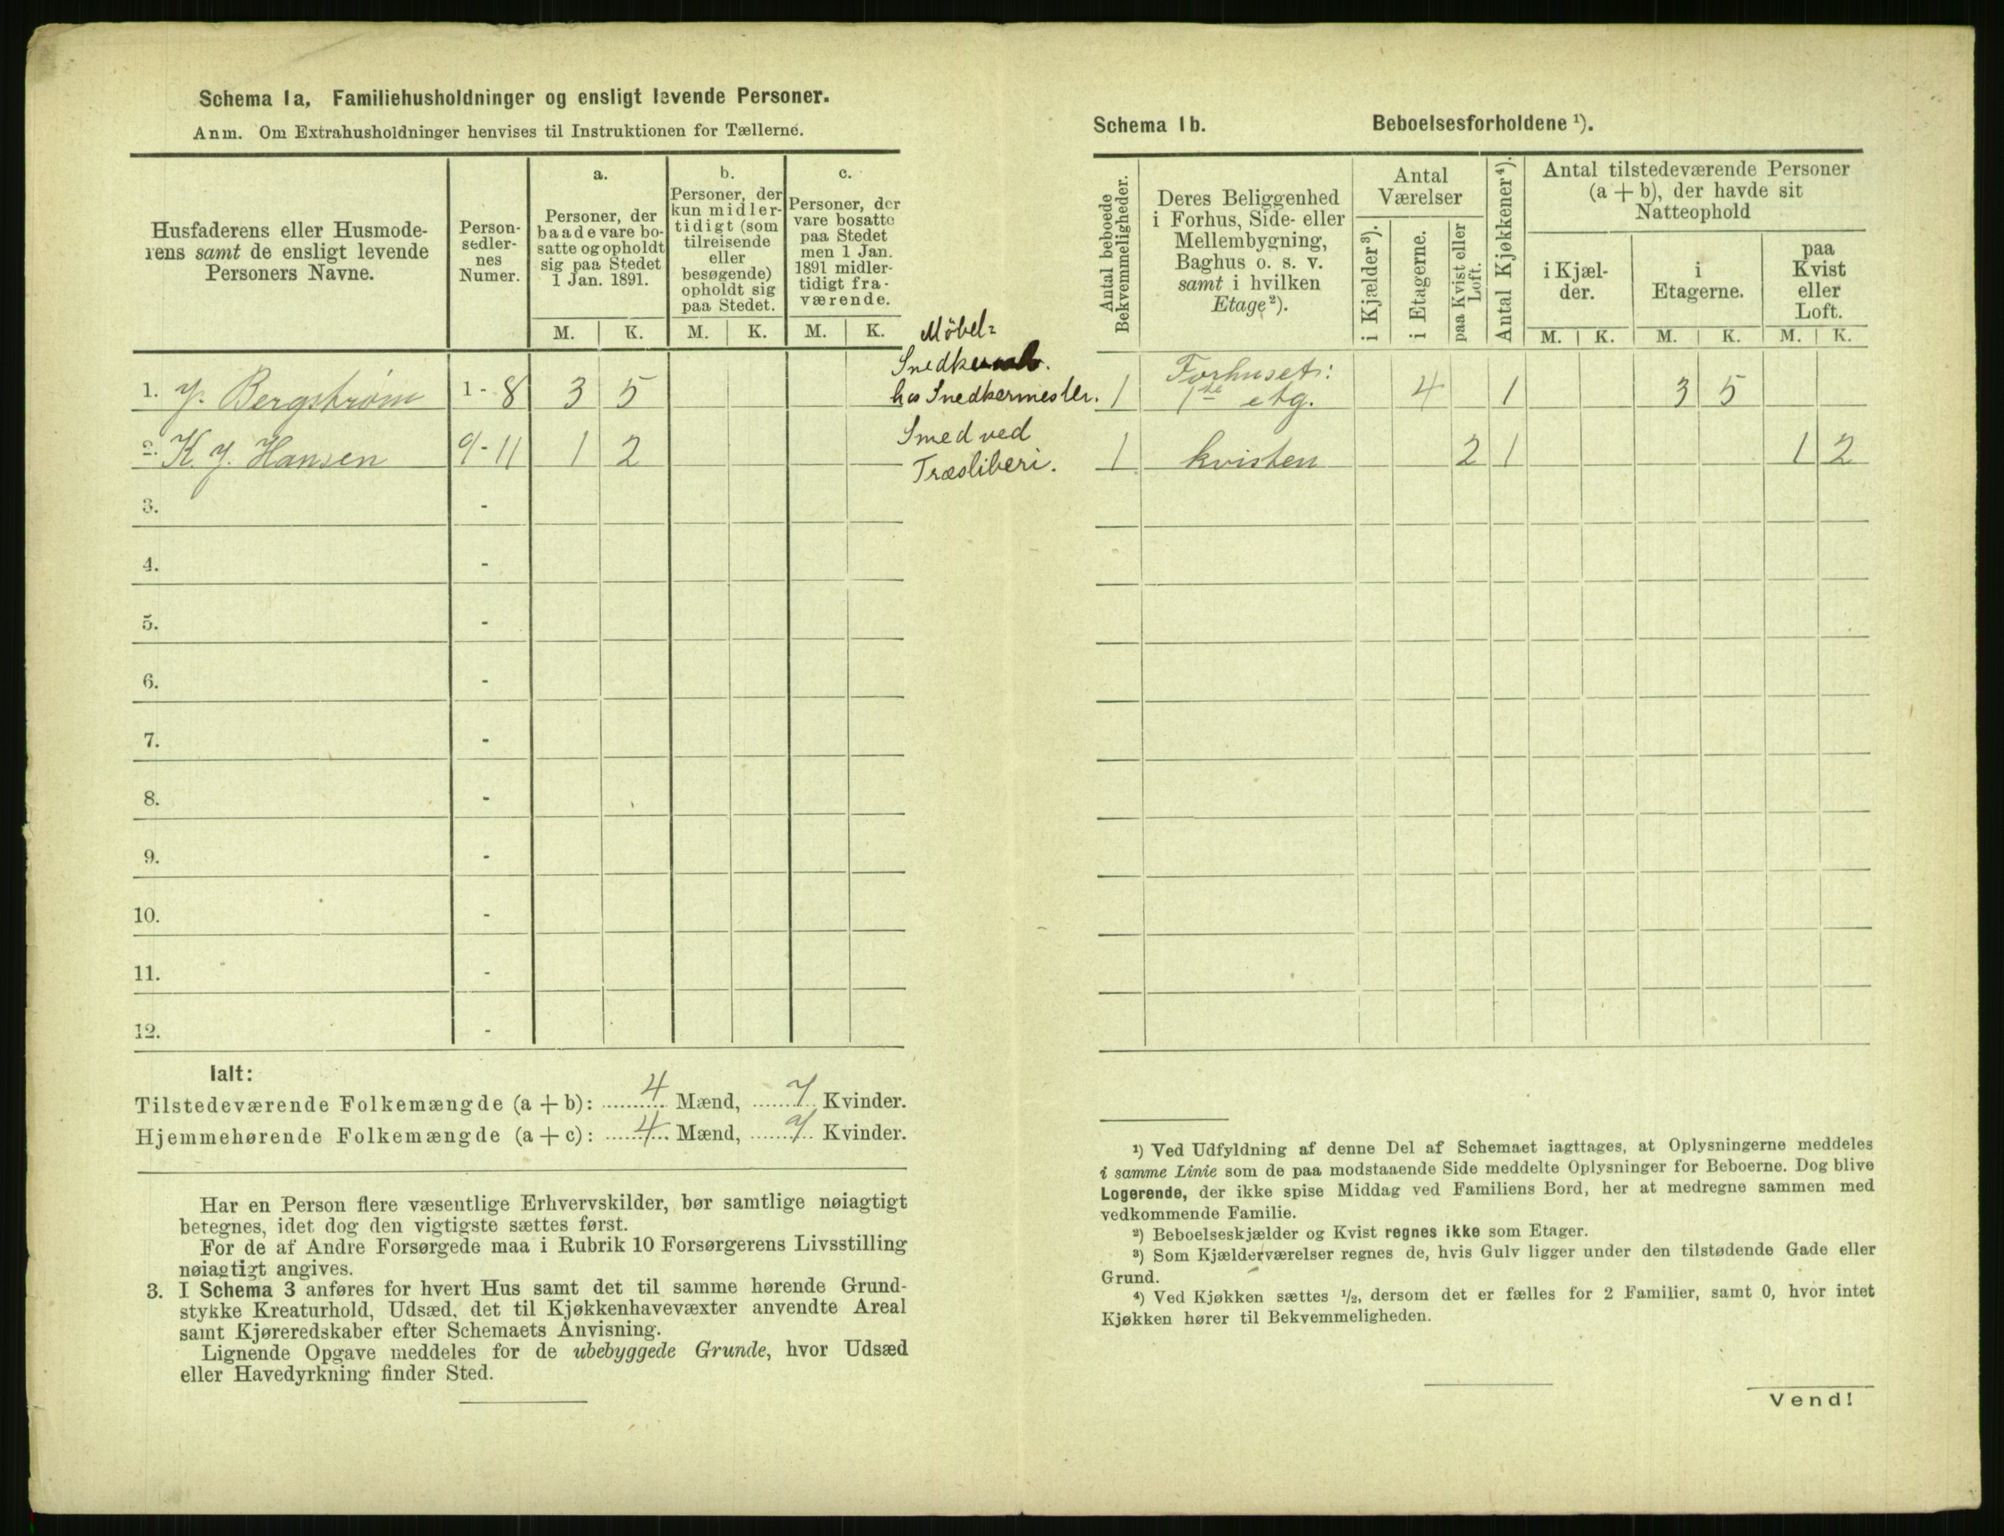 Schema 1a, Familiehusholdninger og ensligt levende Personer.
Anm. Om Extrahusholdninger henvises til Instruktionen for Tællerne.
Husfaderens eller Husmode-
rens samt de ensligt levende
Personers Navne.
Person-
sedler-
nes
Numer.
a.
Personer, der
baade vare bo-
satte og opholdt
sig paa Stedet
1 Jan. 1891.
b.
Personer, der
kun midler-
tidigt (som
tilreisende
eller
besøgende)
opholdt sig
paa Stedet.
c.
Personer, der
vare bosatte
paa Stedet
men 1 Jan.
1891 midler-
tidigt fra-
værende.
M. K. M. K. M. K.
1. J. Bergstrøm 1 - 8 3 5
2. K. J. Hansen 9 - 11 1 2
3. -
4. -
5. -
6. -
7. -
8. -
9. -
10. -
11. -
12. -
Møbel-
hos Snedkermester.
Smed ved
Træsliberi.
Ialt:
Tilstedeværende Folkemængde (a + b): 4 Mænd, 7 Kvinder.
Hjemmehørende Folkemængde (a + c): 4 Mænd, 7 Kvinder.
Har en Person flere væsentlige Erhvervskilder, bør samtlige nøiagtigt
betegnes, idet dog den vigtigste sættes først.
For de af Andre Forsørgede maa i Rubrik 10 Forsørgerens Livsstilling
nøiagtigt angives.
3. I Schema 3 anføres for hvert Hus samt det til samme hørende Grund-
stykke Kreaturhold, Udsæd, det til Kjøkkenhavevæxter anvendte Areal
samt Kjøreredskaber efter Schemaets Anvisning.
Lignende Opgave meddeles for de ubebyggede Grunde, hvor Udsæd
eller Havedyrkning finder Sted.
Schema 1b. Beboelsesforholdene ¹).
Antal beboede
Bekvemmeligheder.
Deres Beliggenhed
i Forhus, Side- eller
Mellembygning,
Baghus o. s. v.
samt i hvilken
Etage²).
Antal
Værelser
i Kjælder³).
i Etagerne.
paa Kvist eller
Loft.
Antal Kjøkkener⁴).
Antal tilstedeværende Personer
(a + b), der havde sit
Natteophold
i Kjæl-
der.
i
Etagerne.
paa
Kvist
eller
Loft.
M. K. M. K. M. K.
Forhuset:
1 1ste etg. 4 1 3 5
1 kvisten 2 1 1 2
¹) Ved Udfyldning af denne Del af Schemaet iagttages, at Oplysningerne meddeles
i samme Linie som de paa modstaaende Side meddelte Oplysninger for Beboerne. Dog blive
Logerende, der ikke spise Middag ved Familiens Bord, her at medregne sammen med
vedkommende Familie.
²) Beboelseskjælder og Kvist regnes ikke som Etager.
³) Som Kjælderværelser regnes de, hvis Gulv ligger under den tilstødende Gade eller
Grund.
⁴) Ved Kjøkken sættes ½, dersom det er fælles for 2 Familier, samt 0, hvor intet
Kjøkken hører til Bekvemmeligheden.
Vend!